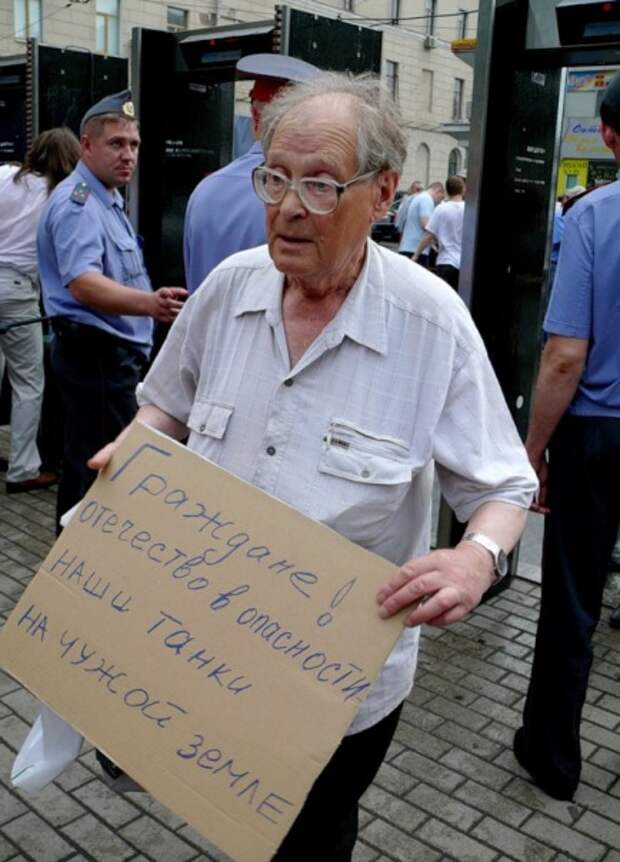 Граждане!
отечество в опасности-
наши танки
на чужой земле